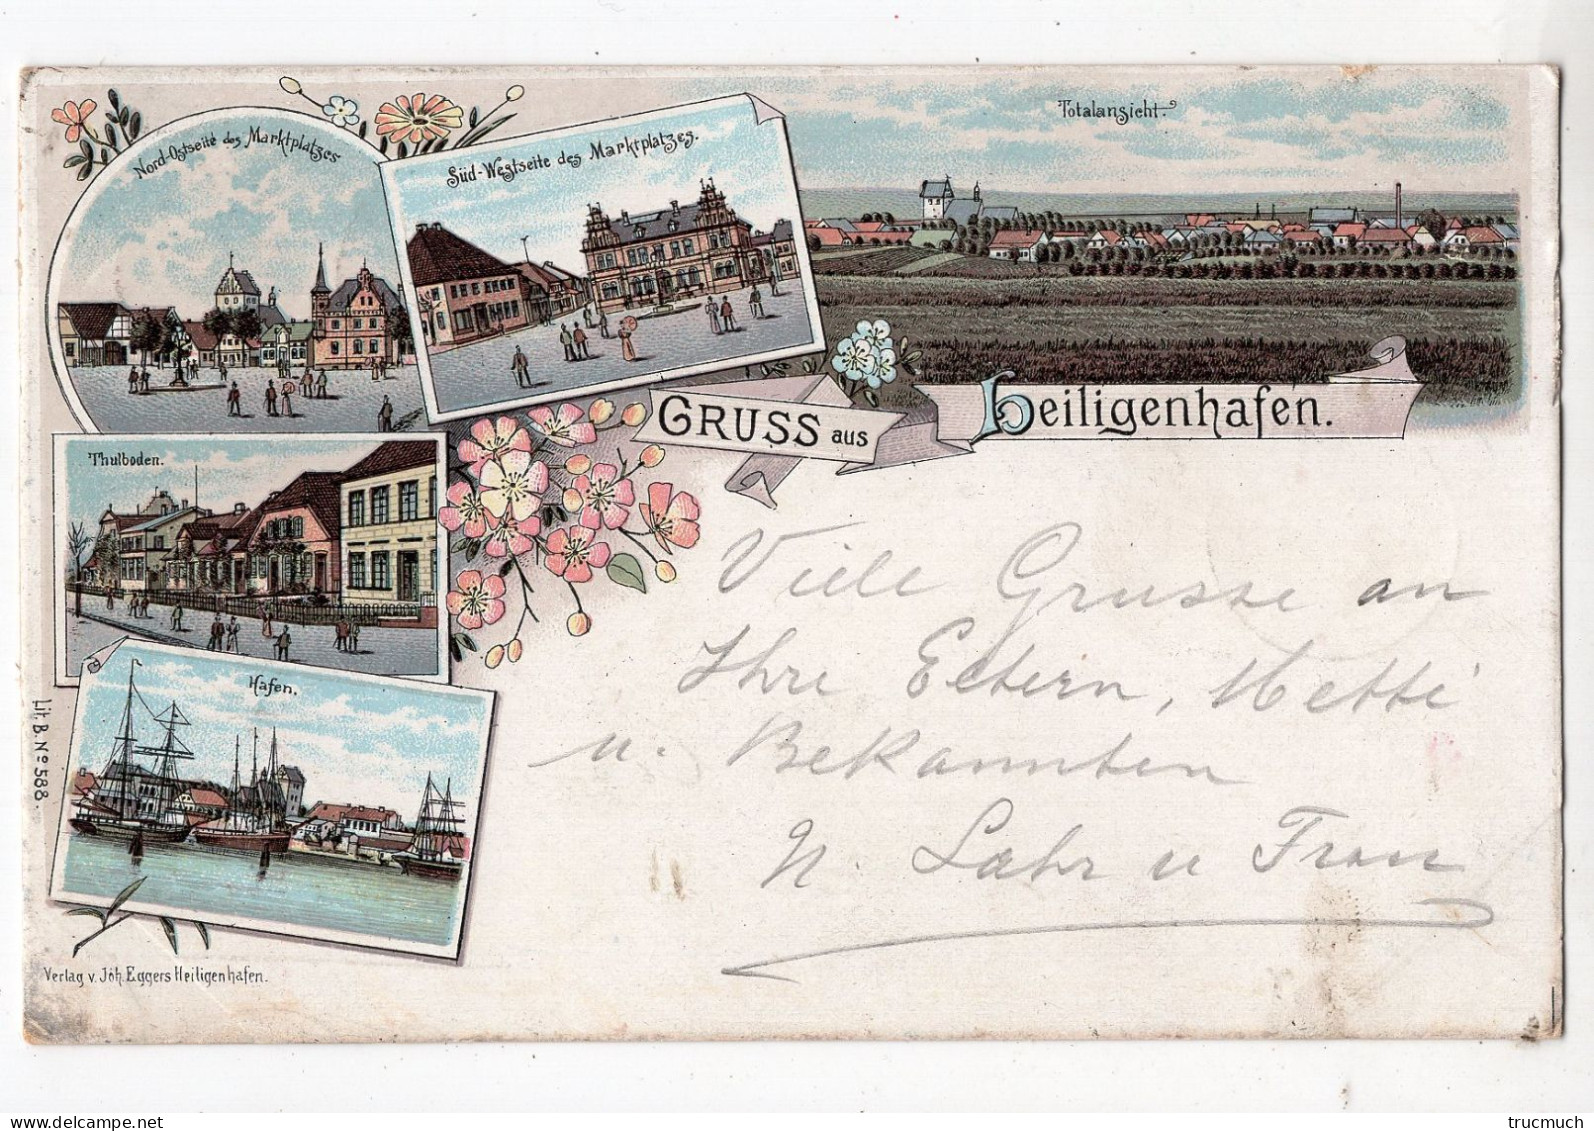 Nord-Ostseite des Marktplatzes
Süd-Westseite des Marktplatzes.
Totalansicht.
GRUSS aus Heiligenhafen.
Thulboden.
Hafen.
Lit. B. Nº 588.
Verlag v. Joh. Eggers Heiligenhafen.
Viele Grusse an
Ihre Eltern,
u. Bekannten
N. Lahr u Frau
trucmuch